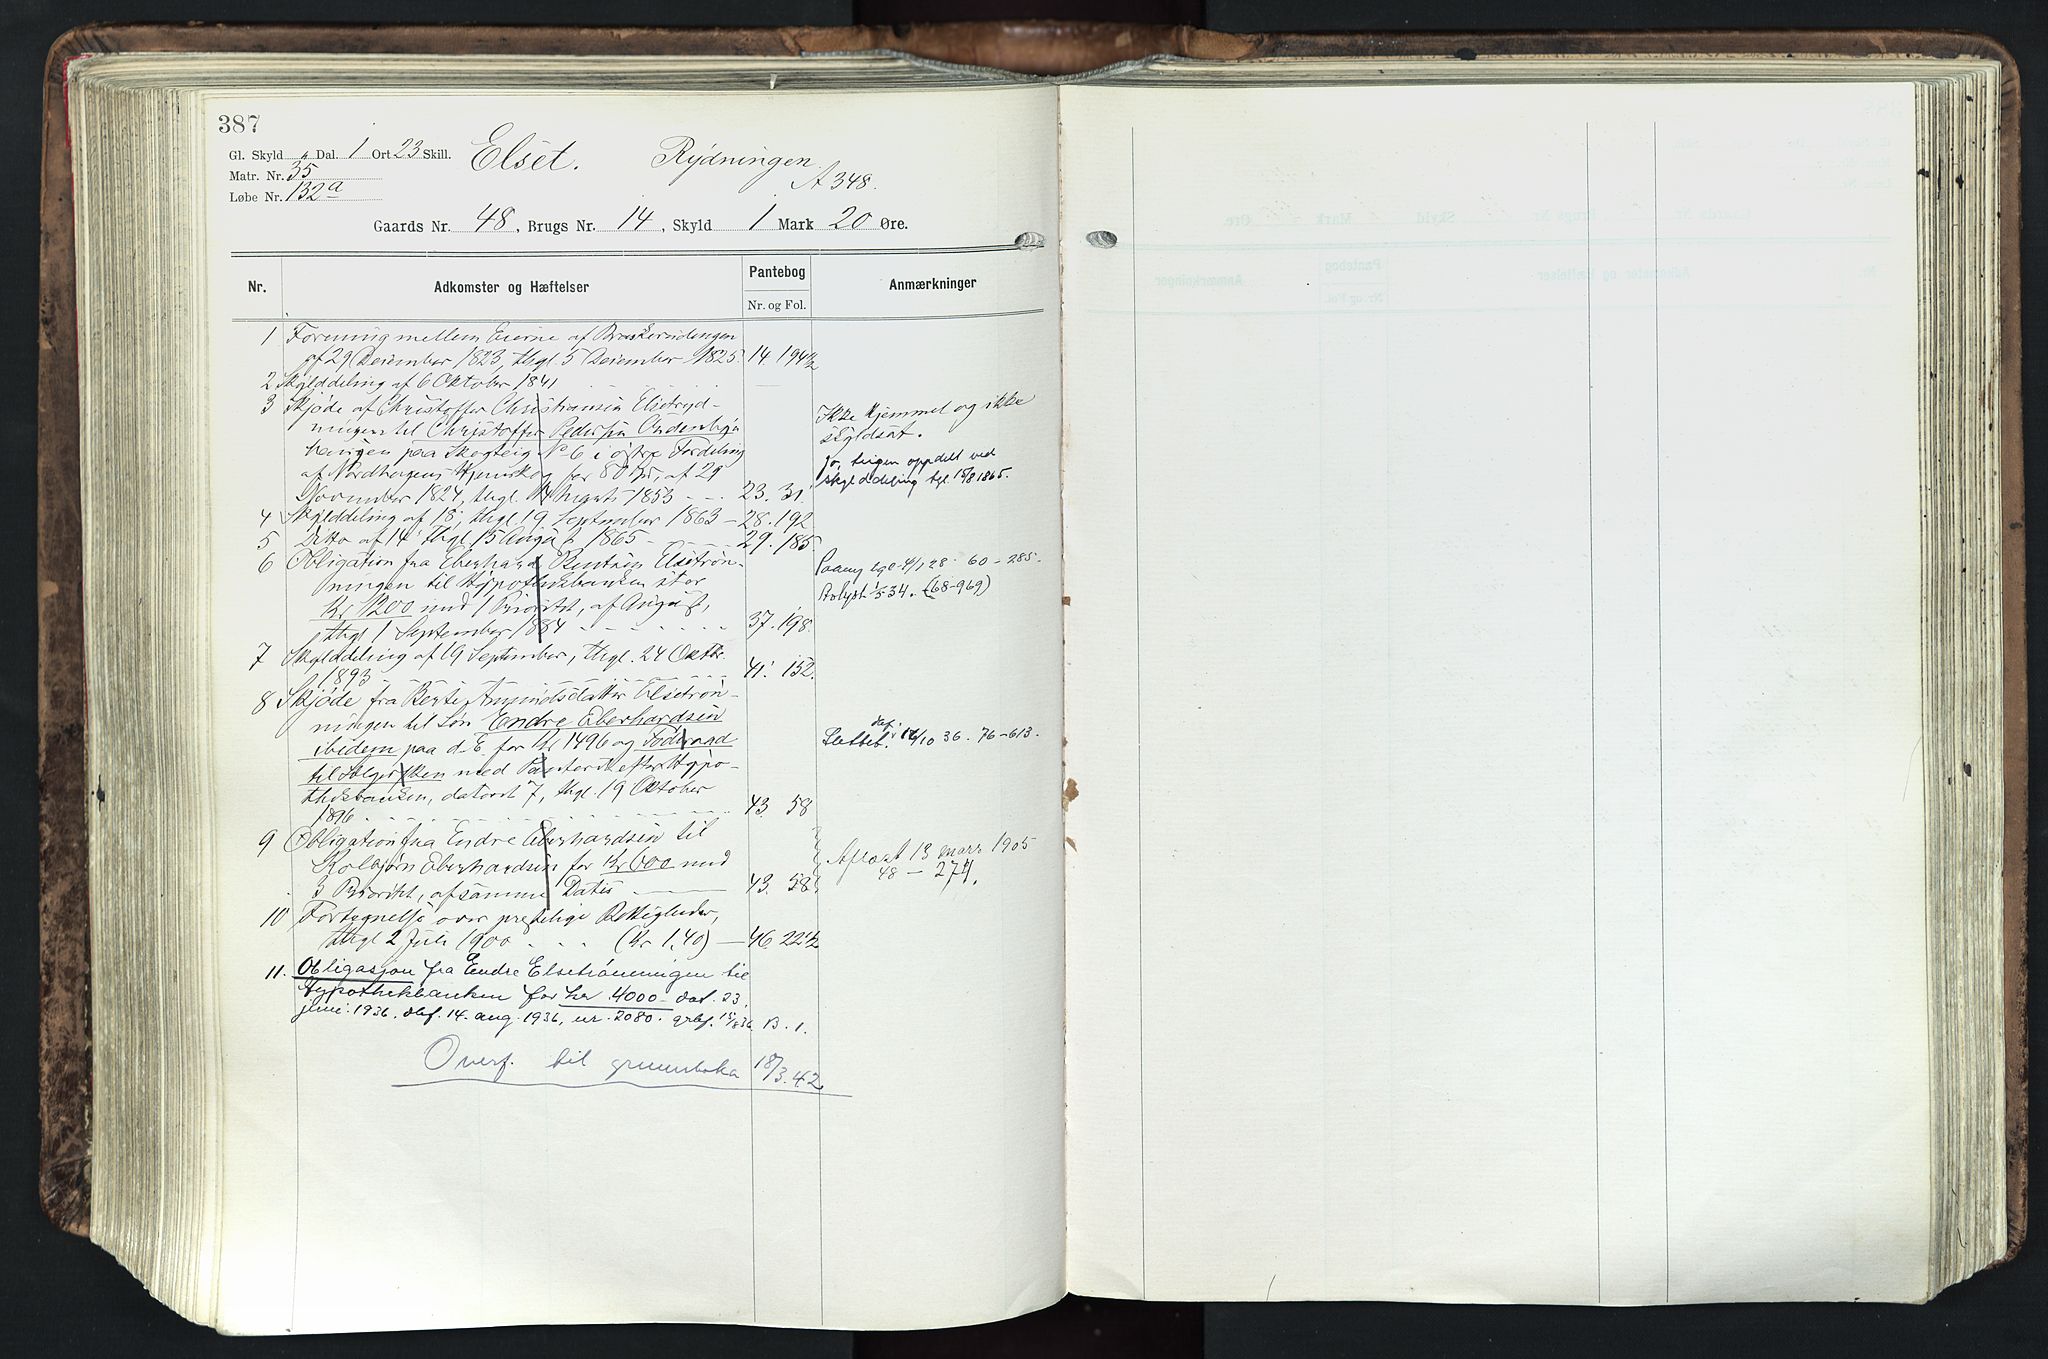 387
Gl. Skyld " Dal. 1 Ort 23 Skill.
Matr. Nr. 35
Løbe Nr. 132a
Elset. Rydningen
A 348.
Gaards Nr. 48, Brugs Nr. 14, Skyld 1 Mark 20 Øre.
Nr. Adkomster og Hæftelser Pantebog Anmærkninger
Nr. og Fol.
1 Forening mellem Eierne af
af 29 Desember 1823, thgl. 5 Desember 1825. 14. 194½
2 Skylddeling af 6 Oktober 1841
3 Skjøde af Christoffer Christiansen Elsetryd-
ningen til Christoffer Pedersen
paa Skogteig No 6 i østre Fordeling
af for 80 af 29
November 1824, thgl. 1853 - - - 23. 31.
Ikke Hjemmel og ikke
skyldsat.
Jo, teigen oppdelt ved
skylddeling tgl. 15/8 1865.
4 Skylddeling af 18, thgl. 19 September 1863 - 28. 192
5 Ditto af 14 thgl. 15 August 1865 - 29. 185
6 Obligation fra Eberhard Elsetrøn-
ningen til Hypothekbanken stor
Kr 1200 med 1 Prioritet, af August,
thgl. 1 September 1884 - - - 37. 198.
28. 60 - 285.
Avlyst 1/5 34. (68-969)
7 Skylddeling af 19 September, thgl. 24 Oktbr.
1893 - - - 41. 152.
8 Skjøde fra Berte Amundsdatter Elsetrøn-
ningen til Søn Endre Eberhardsen
ibidem paa d. E. for Kr 1496 og Føderaad
til Sælgersken med Panteret efter Hypo-
thekbanken, dateret 7, thgl. 19 Oktober
1896 - - - 43 58
Slettet. 14/10 36. 76-613.
9 Obligation fra Endre Eberhardsen til
Kolbjørn Eberhardsen for Kr 600 med
3 Prioritet, af samme Dato 43. 58
Aflæst 13 mars 1905
48 - 274.
10 Fortegnelse over præstelige Rettigheder,
thgl. 2 Juli 1900 - - - (Kr 1,40) - 46. 221½
11. Obligasjon fra Endre Elsetrønningen til
Hypothekbanken for kr 4000 - dat. 23.
juni 1936. dbf. 14. aug. 1936, nr. 2080. 15/8 36. B. 1.
Overf. til grunnboka 18/3. 42.